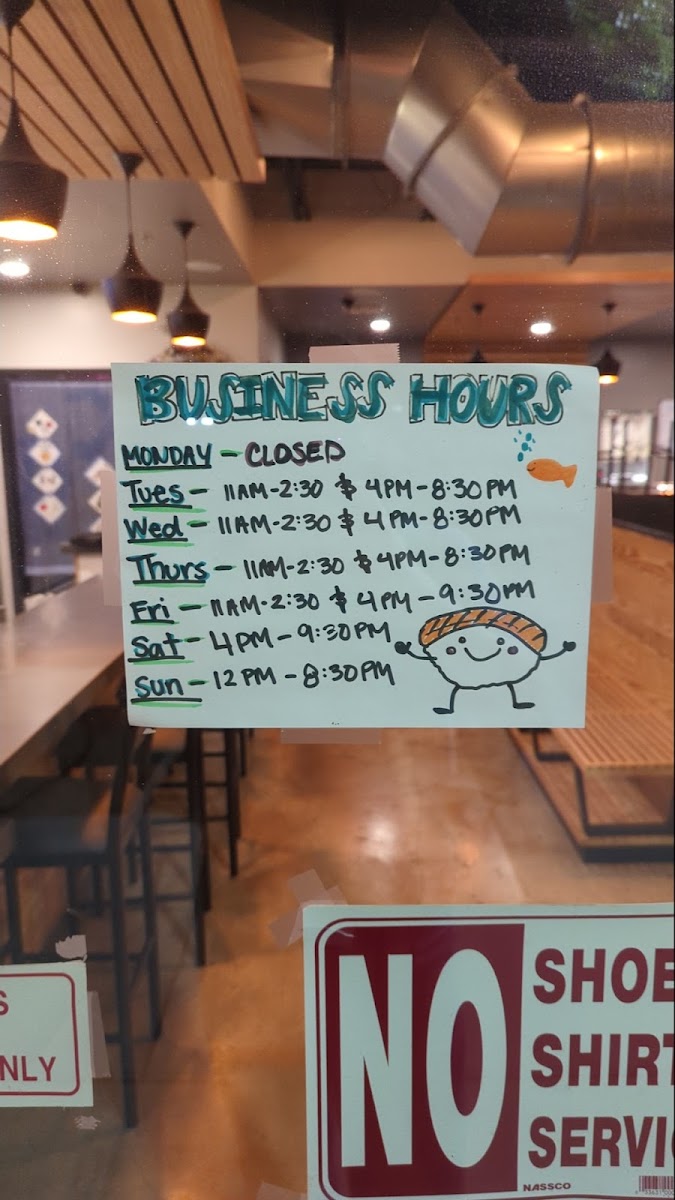 BUSINESS HOURS
MONDAY - CLOSED
Tues - 11AM-2:30 & 4PM-8:30PM
Wed - 11AM-2:30 & 4PM-8:30PM
Thurs - 11AM-2:30 & 4PM-8:30PM
Fri - 11AM-2:30 & 4PM-9:30PM
Sat - 4PM-9:30PM
Sun - 12PM-8:30PM
S
NLY
NO
SHOE
SHIRT
SERVI
NASSCO